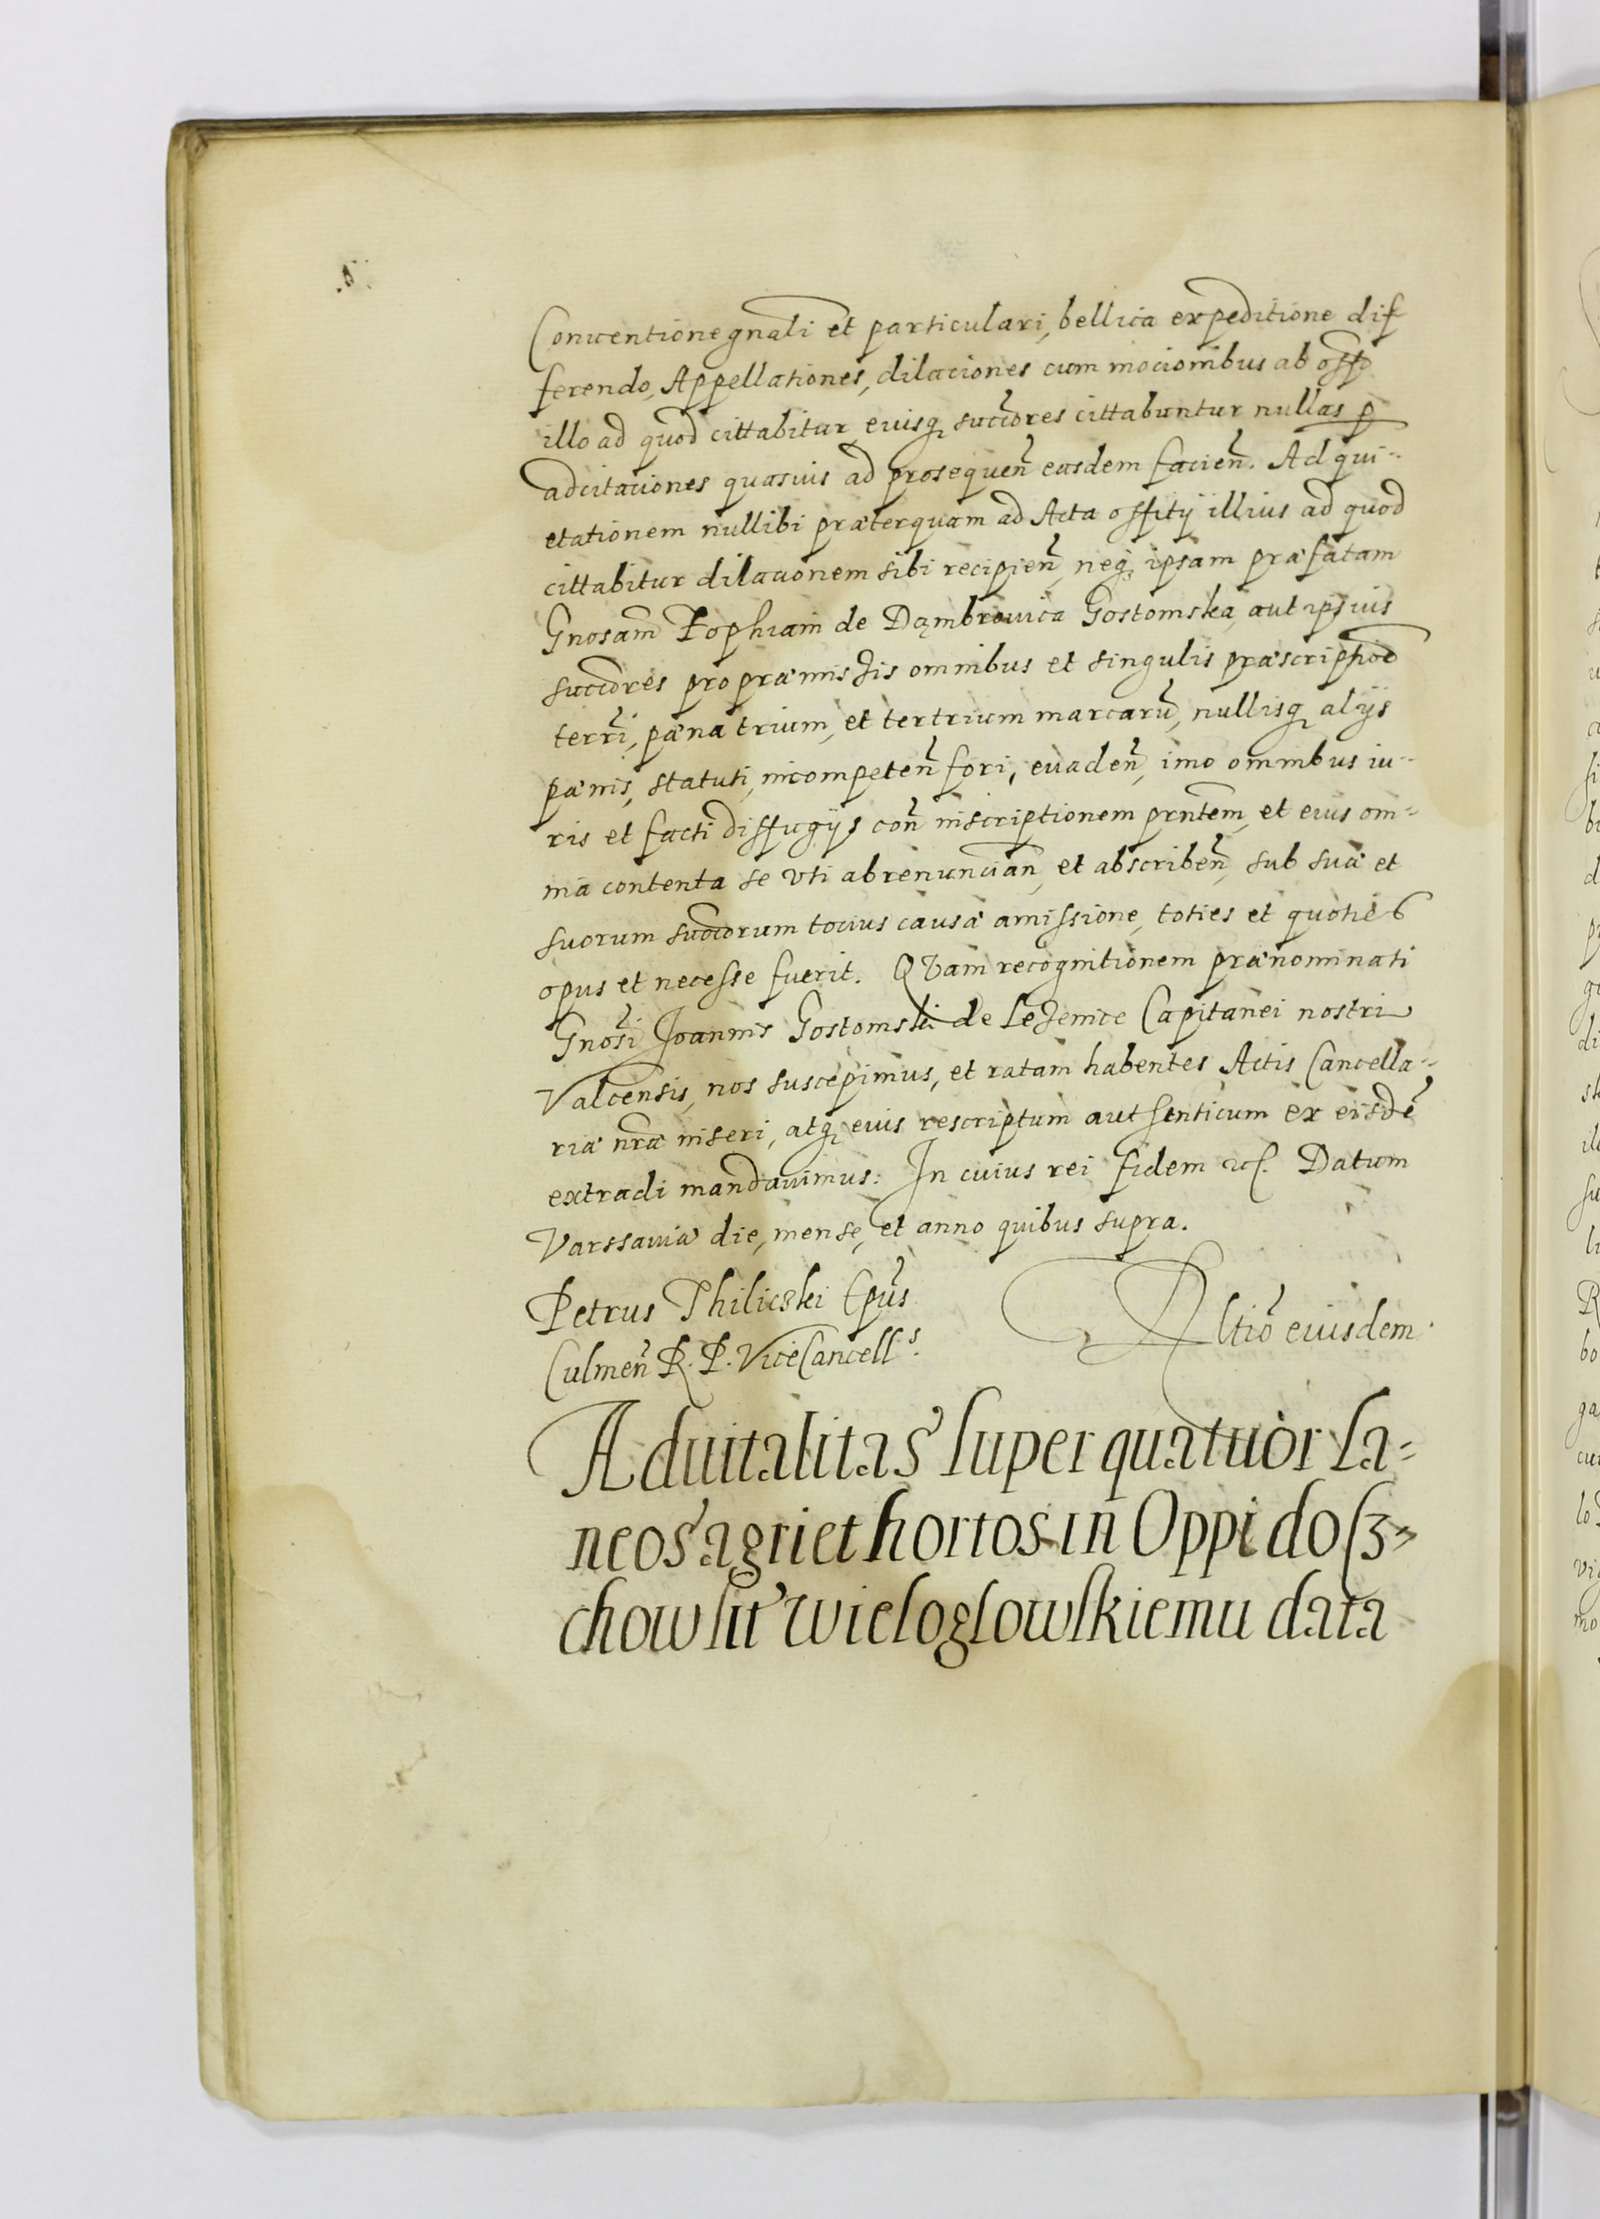 Conventione gnali et particulari, bellica expeditione dif
ferendo, Appellationes, dilaciones cum mocionibus ab offo
illo ad quod cittabitur, eiusq succores cittabuntur nullas p
adcitaciones quasuis ad prosequen easdem facien. Ad qui-
etationem nullibi præterquam ad Acta offitij illius ad quod
cittabitur dilacionem sibi recipien, neq ipsam præfatam
Gnosam Zophiam de Dąmbrowica Gostomska, aut ipsius
succores pro præmissis omnibus et singulis præscriptioe
terri, pæna trium, et ter trium marcaru, nullisq alijs
pænis, statuti, incompeten fori, euaden, imo omnibus iu-
ris et facti diffugijs con inscriptionem prntem, et eius om-
nia contenta se vti abrenuncian, et abscriben, sub suæ et
suorum succorum tocius causæ amissione, toties et quoties
opus et necesse fuerit. QVam recognitionem prænominati
Gnosi Joannis Gostomski de Lezenice Capitanei nostri
Valcensis, nos suscepimus, et ratam habentes Actis Cancella-
riæ nræ inseri, atq eius rescriptum authenticum ex eisde
extradi mandauimus: In cuius rei fidem etc. Datum
Varssauiæ die, mense, et anno quibus supra.
Petrus Thilicski Epus
Culmen R. P. ViceCancells.
Rltio eiusdem.
Aduitalitas super quatuor La-
neos agri et hortos in Oppido Sz-
chow sit Wieloglowskiemu data